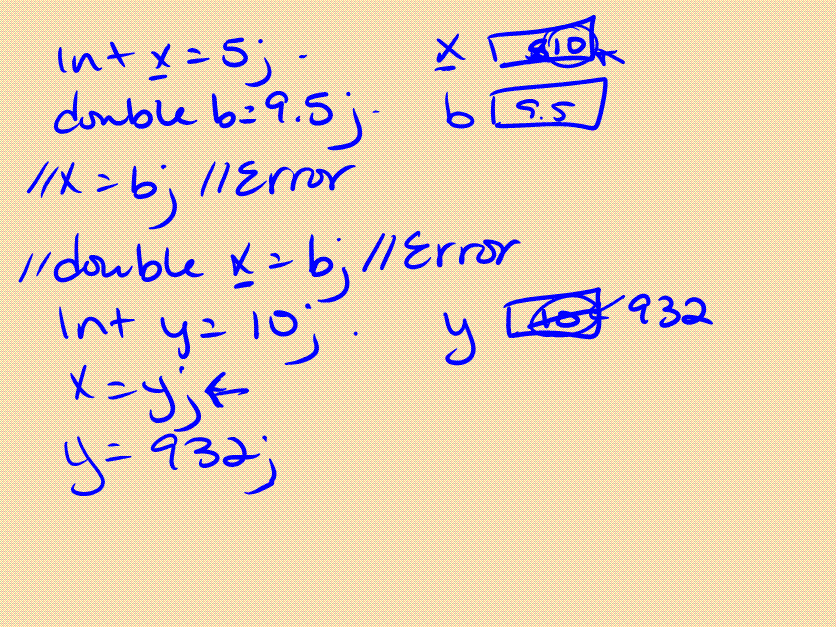 int x = 5; x 10
double b = 9.5; b 9.5
//x = b; //Error
//double x = b; //Error
int y = 10; y 10 932
x = y; ←
y = 932;